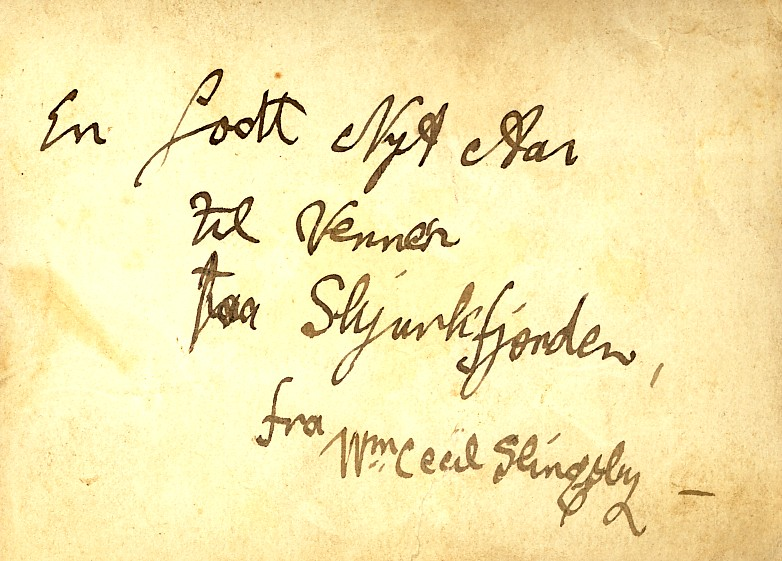 En godt Nyt Aar
til Venner
paa Skjurkfjorden,
fra Wm Cecil Slingsby —